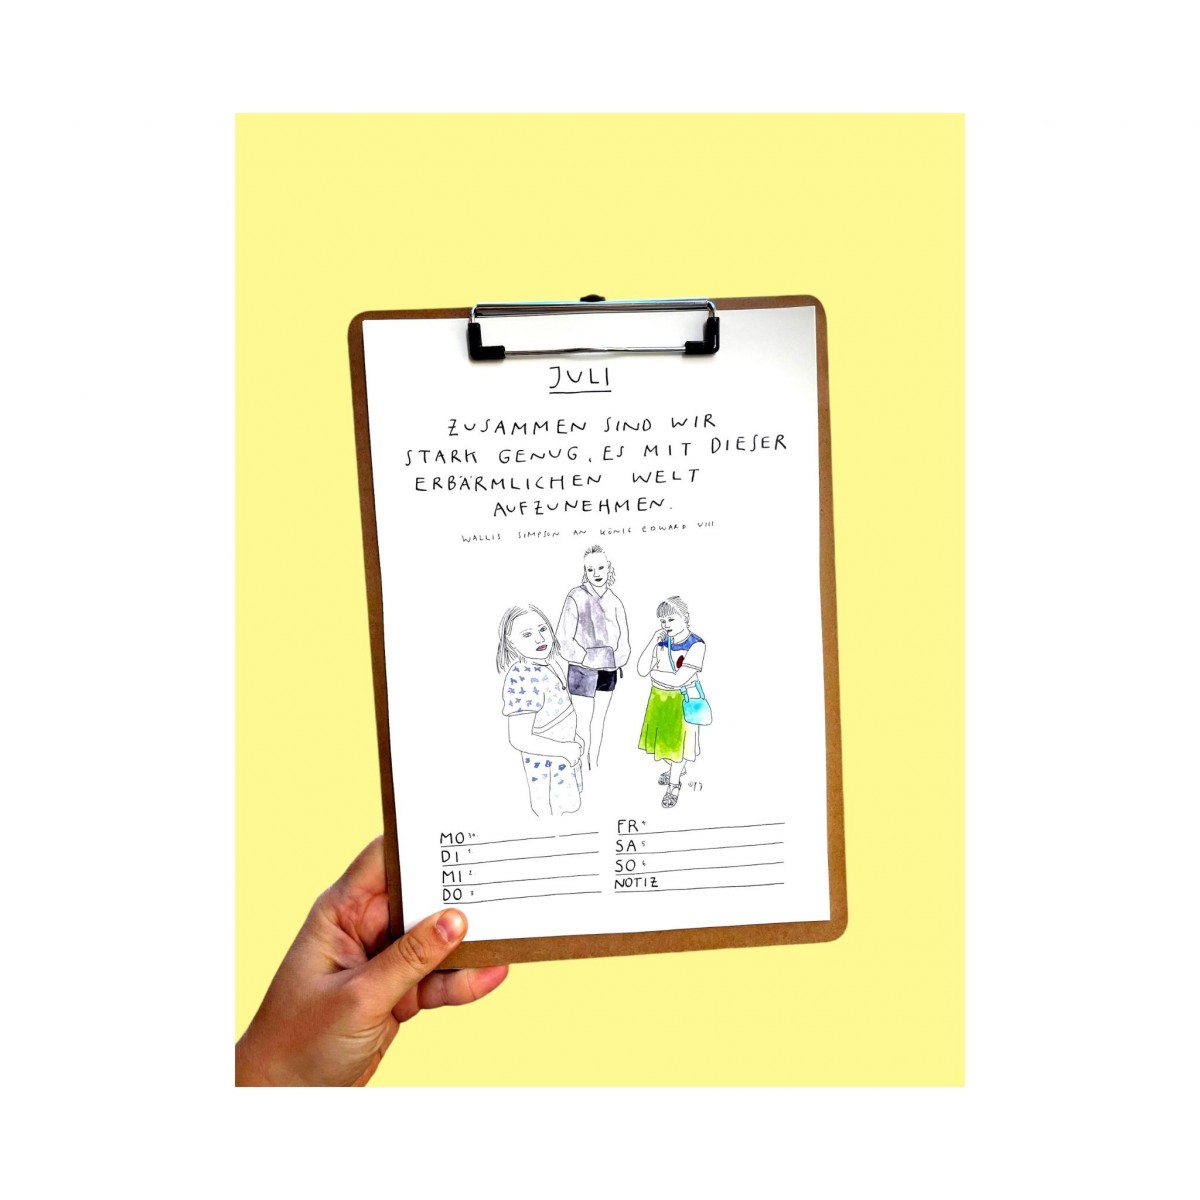 JULI
ZUSAMMEN SIND WIR
STARK GENUG, ES MIT DIESER
ERBÄRMLICHEN WELT
AUFZUNEHMEN.
WALLIS SIMPSON AN KÖNIG EDWARD VIII
MO 30.
DI 1.
MI 2.
DO 3
FR 4
SA 5
SO 6
NOTIZ